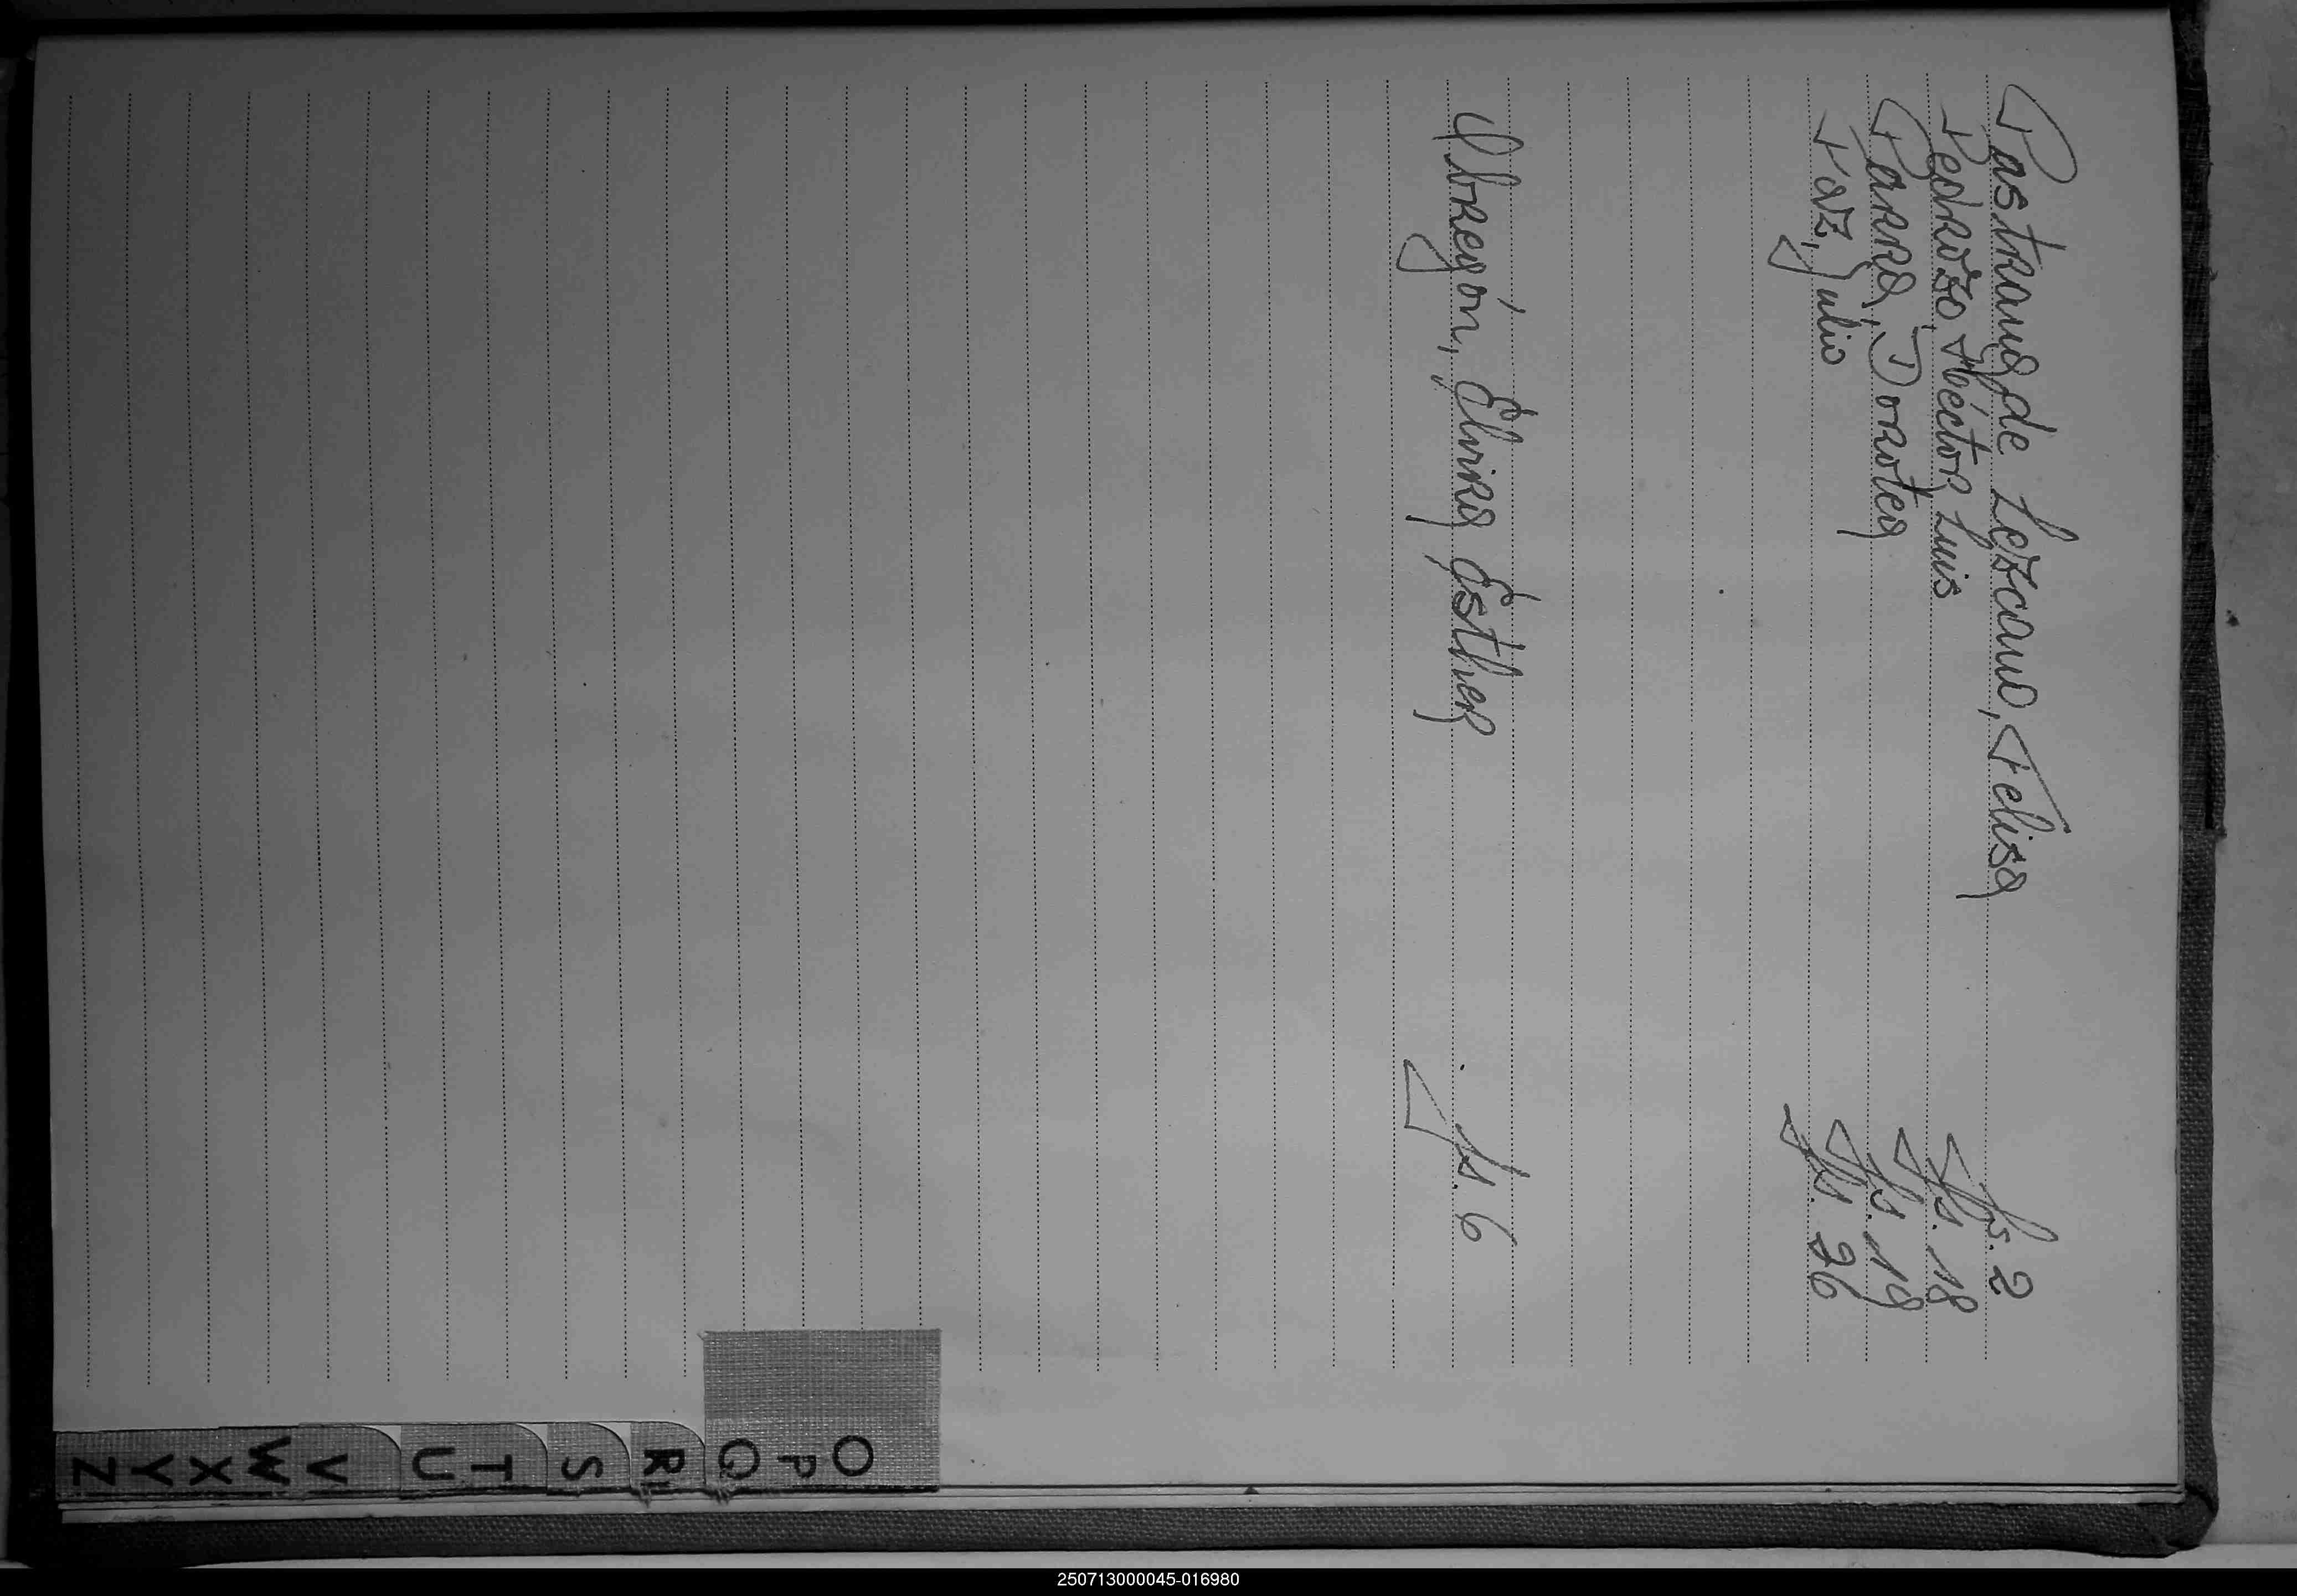 Pastrana de Lezcano, Felisa fs. 2
Pedrozo, Héctor Luis fs. 18
Parra, Dorotea fs. 19
Paz, Julio fs. 26
Obregón, Elvira Esther fs. 6
O
P
Q
R
S
T
U
V
W
X
Y
Z
250713000045-016980